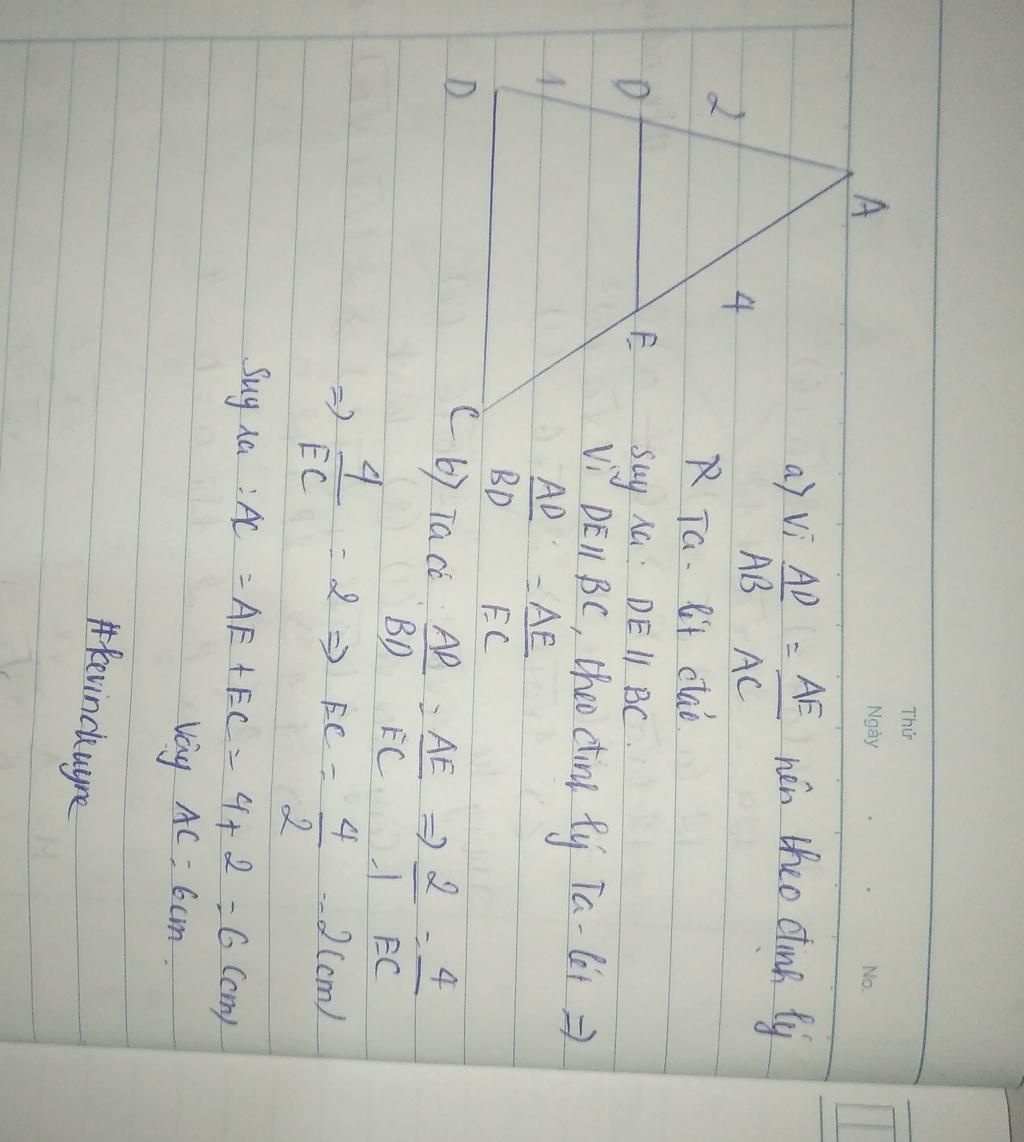 Thứ
Ngày
No.
A
2
4
D
E
1
D
C
a) Vì AD/AB = AE/AC nên theo định lý
Ta-lét đảo.
Suy ra: DE // BC.
Vì DE // BC, theo định lý Ta-lét =>
AD/BD = AE/EC
b) Ta có: AD/BD = AE/EC => 2/1 = 4/EC
=> 4/EC = 2 => EC = 4/2 = 2(cm)
Suy ra: AC = AE + EC = 4 + 2 = 6 (cm)
Vậy AC = 6cm.